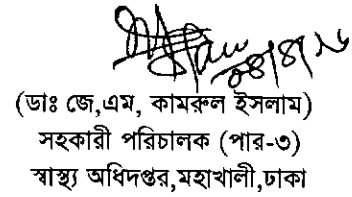 (ডাঃ জে,এম, কামরুল ইসলাম)
সহকারী পরিচালক (পার-৩)
স্বাস্থ্য অধিদপ্তর,মহাখালী,ঢাকা